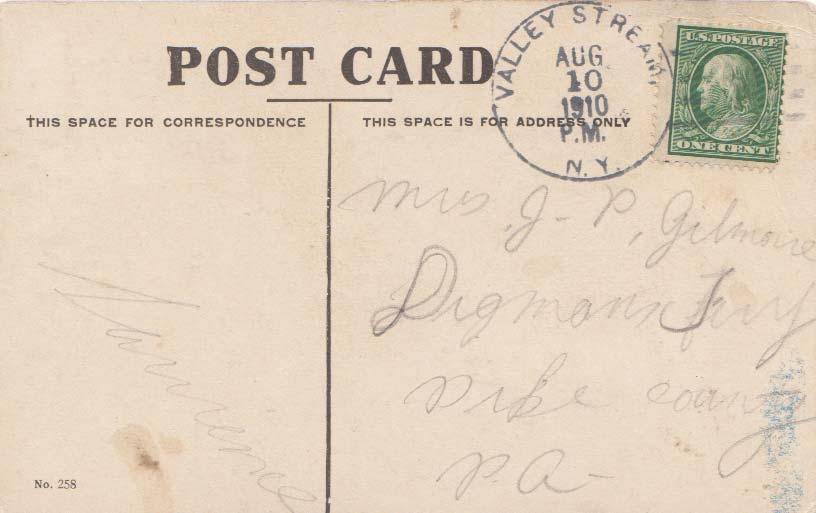 POST CARD
THIS SPACE FOR CORRESPONDENCE
THIS SPACE IS FOR ADDRESS ONLY
VALLEY STREAM,
AUG.
10
1910
P.M.
N.Y.
U.S. POSTAGE
ONE CENT
Mrs. J-P, Gilmore
Digmans Ferry
Pike County
P.A-
Lawrence
No. 258